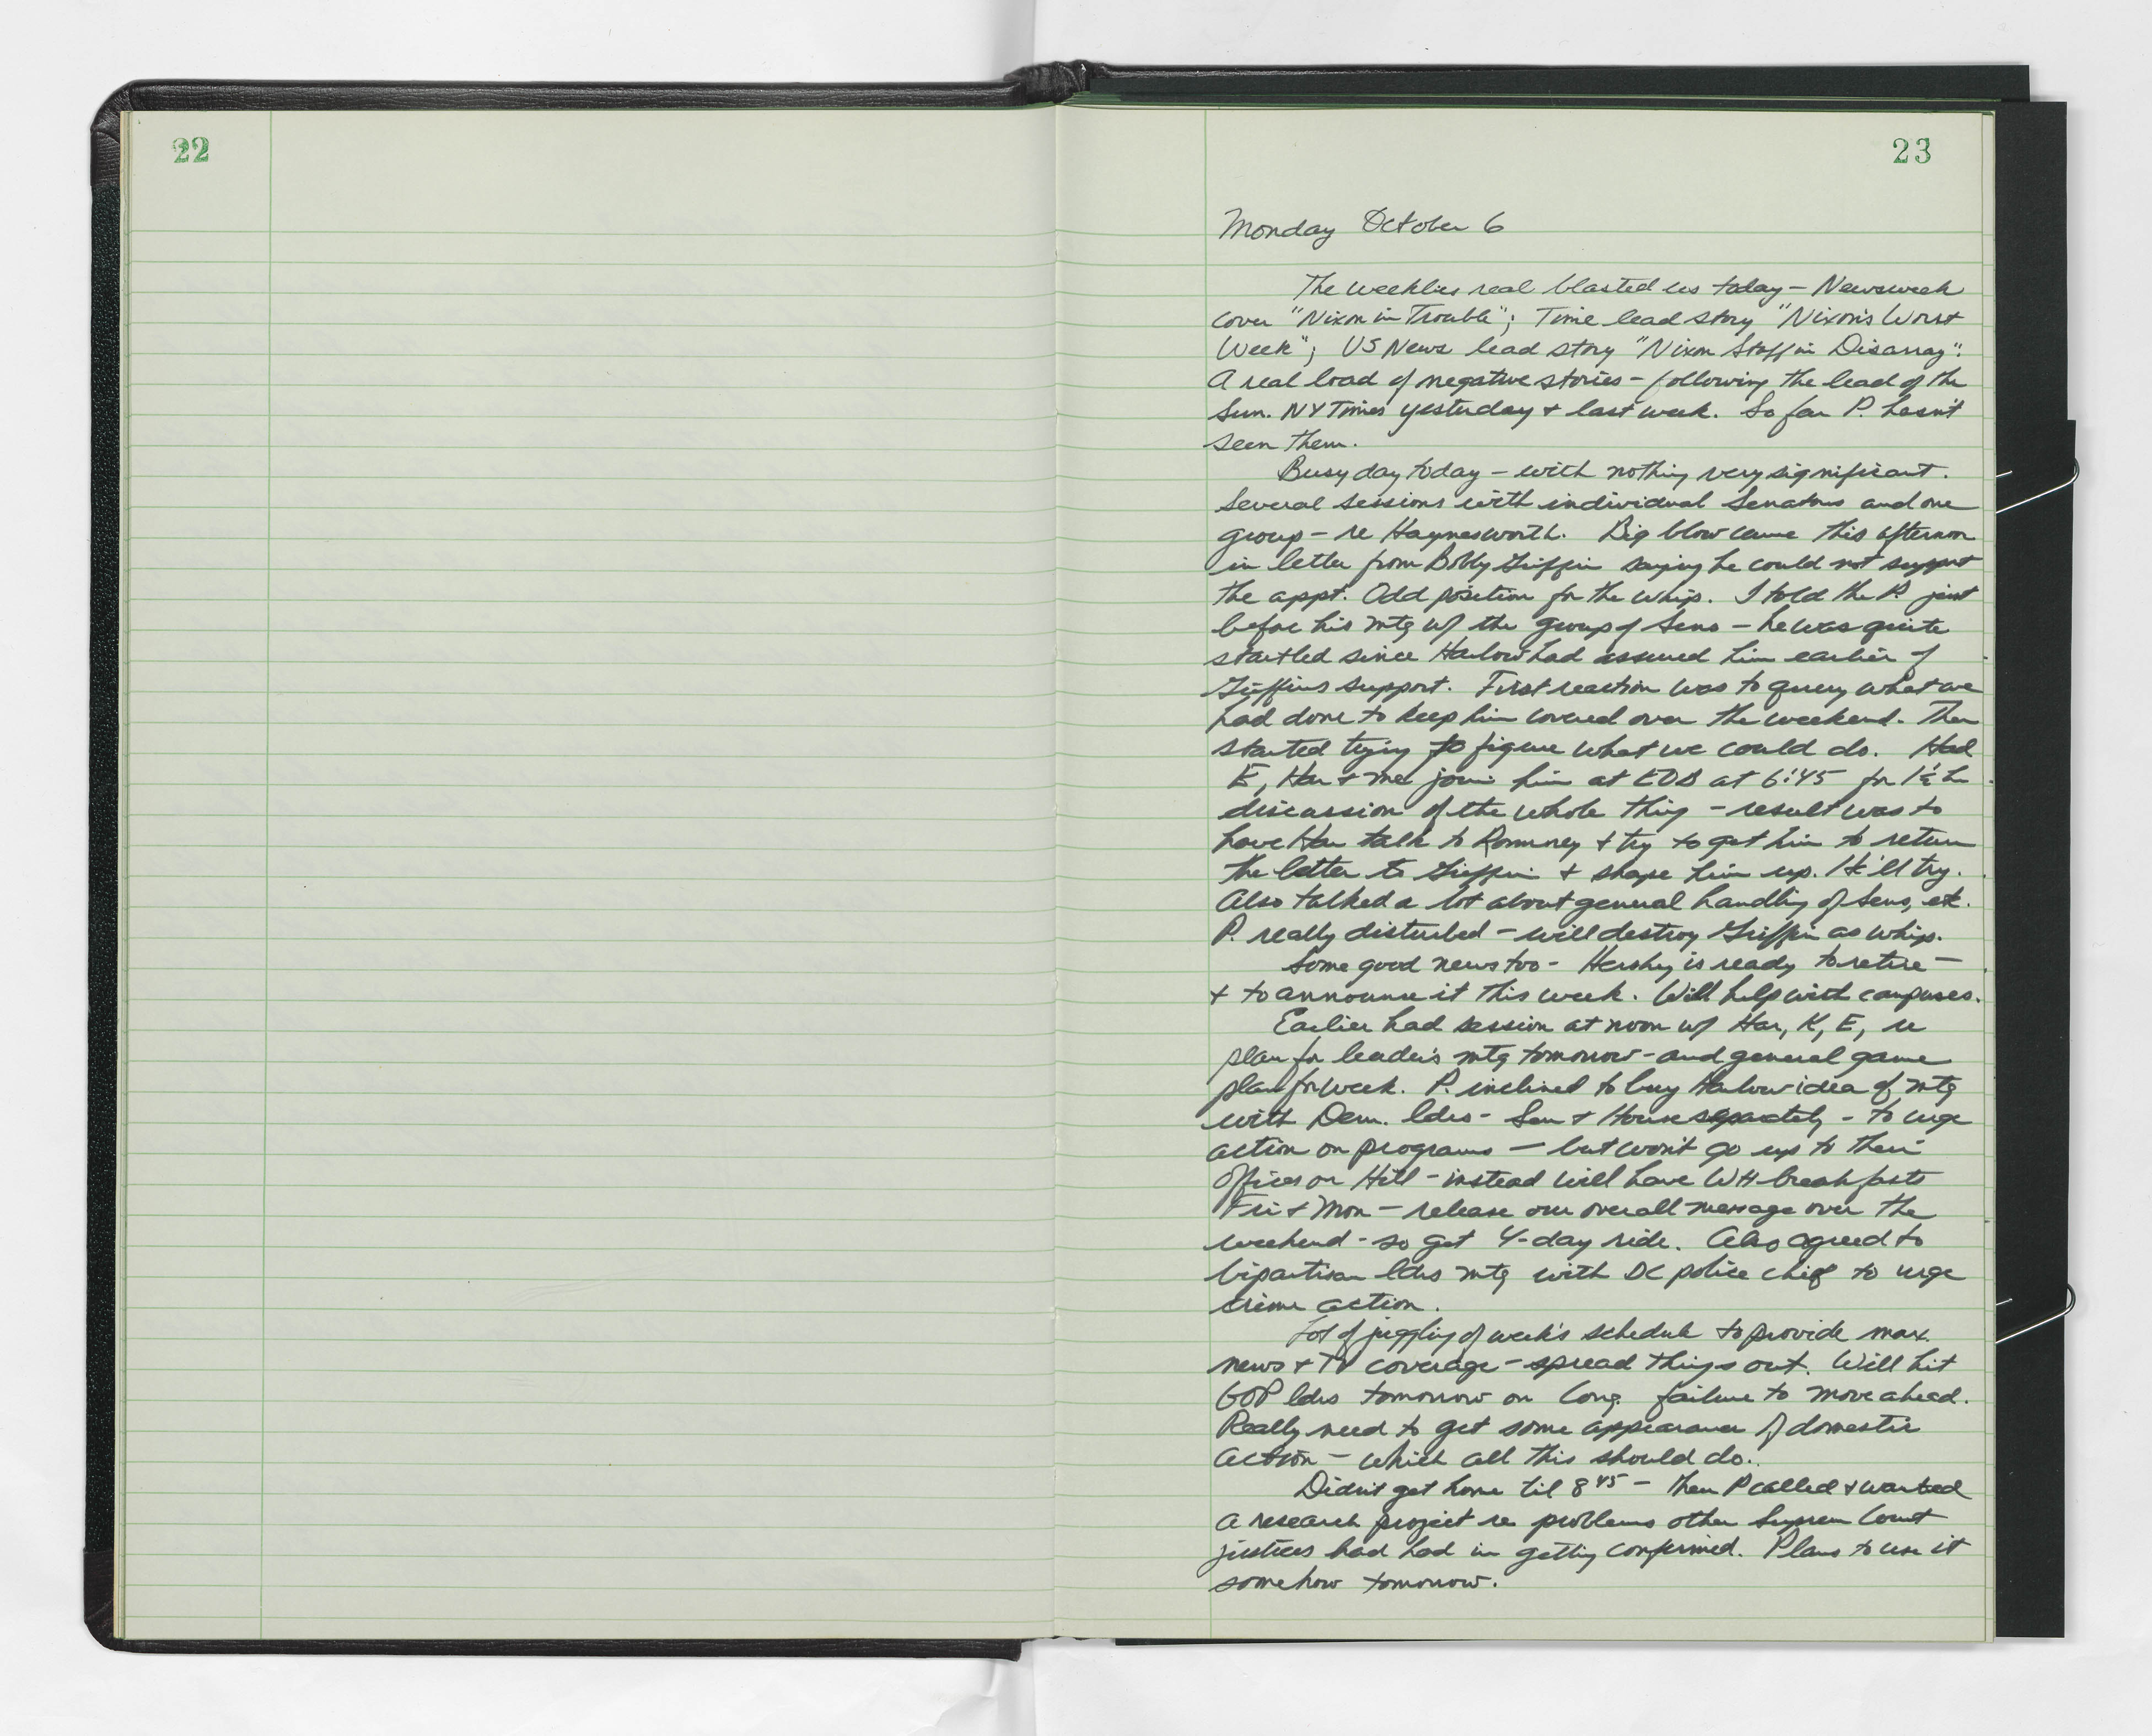 22
23
Monday October 6
The weeklies real blasted us today - Newsweek
cover "Nixon in Trouble"; Time lead story "Nixon's Worst
Week"; US News lead story "Nixon Staff in Disarray".
A real load of negative stories - following the lead of the
Sun. NY Times yesterday + last week. So far P. hasn't
seen them.
Busy day today - with nothing very significant.
Several sessions with individual Senators and one
group - re Haynesworth. Big blow came this afternoon
in letter from Bobby Griffin saying he could not support
the appt. Odd position for the whip. I told the P. just
before his mtg w/ the group of Sens - he was quite
startled since Harlow had assured him earlier of
Griffins support. First reaction was to query what we
had done to keep him covered over the weekend. Then
started trying to figure what we could do. Had
E, Har + me join him at EOB at 6:45 for 1½ hr
discussion of the whole thing - result was to
have Har talk to Romney + try to get him to return
the letter to Griffin + shape him up. He'll try.
Also talked a lot about general handling of Sens, etc.
P. really disturbed - will destroy Griffin as whip.
Some good news too - Hershey is ready to retire -
+ to announce it this week. Will help with campuses.
Earlier had session at noon w/ Har, K, E, re
plan for leader's mtg tomorrow - and general game
plan for week. P. inclined to buy Harlow idea of mtg
with Dem. ldrs - Sen + House separately - to urge
action on programs - but won't go up to their
offices on Hill - instead will have WH breakfasts
Fri + Mon - release our overall message over the
weekend - so get 4-day ride. Also agreed to
bipartisan ldrs mtg with DC police chief to urge
crime action.
Lot of juggling of week's schedule to provide max.
news + TV coverage - spread things out. Will hit
GOP ldrs tomorrow on Cong. failure to move ahead.
Really need to get some appearance of domestic
action - which all this should do.
Didn't get home til 8 45 - then P called + wanted
a research project re problems other Supreme Court
justices had had in getting confirmed. Plans to use it
somehow tomorrow.